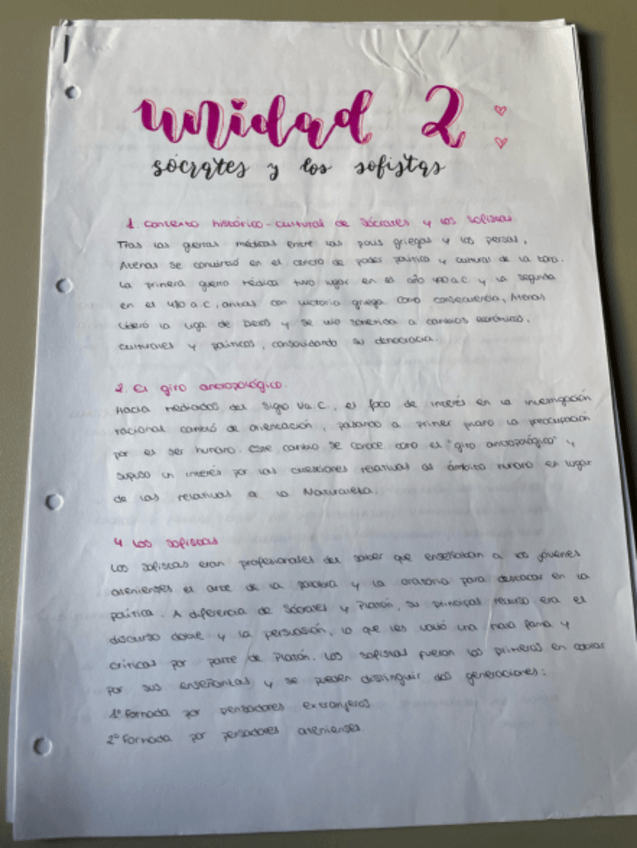 unidad 2
sócrates y los sofistas
1. Contexto histórico-cultural de Sócrates y los sofistas.
Tras las guerras médicas entre las polis griegas y los persas,
Atenas se convirtió en el centro de poder político y cultural de la época.
La primera guerra médica tuvo lugar en el año 490 a.C y la segunda
en el 480 a.C, ambas con victoria griega. Como consecuencia, Atenas
lideró la liga de Delos y se vio sometida a cambios económicos,
culturales y políticos, consolidando su democracia.
2. El giro antropológico.
Hacia mediados del siglo V a.C, el foco de interés en la investigación
racional cambió de orientación, pasando a primer plano la preocupación
por el ser humano. Este cambio se conoce como el "giro antropológico" y
supuso un interés por las cuestiones relativas al ámbito humano en lugar
de las relativas a la Naturaleza.
4 Los sofistas
Los sofistas eran profesionales del saber que enseñaban a los jóvenes
atenienses el arte de la palabra y la oratoria para destacar en la
política. A diferencia de Sócrates y Platón, su principal recurso era el
discurso doble y la persuasión, lo que les valió una mala fama y
críticas por parte de Platón. Los sofistas fueron los primeros en cobrar
por sus enseñanzas y se pueden distinguir dos generaciones:
1º Formada por pensadores extranjeros
2º Formada por pensadores atenienses